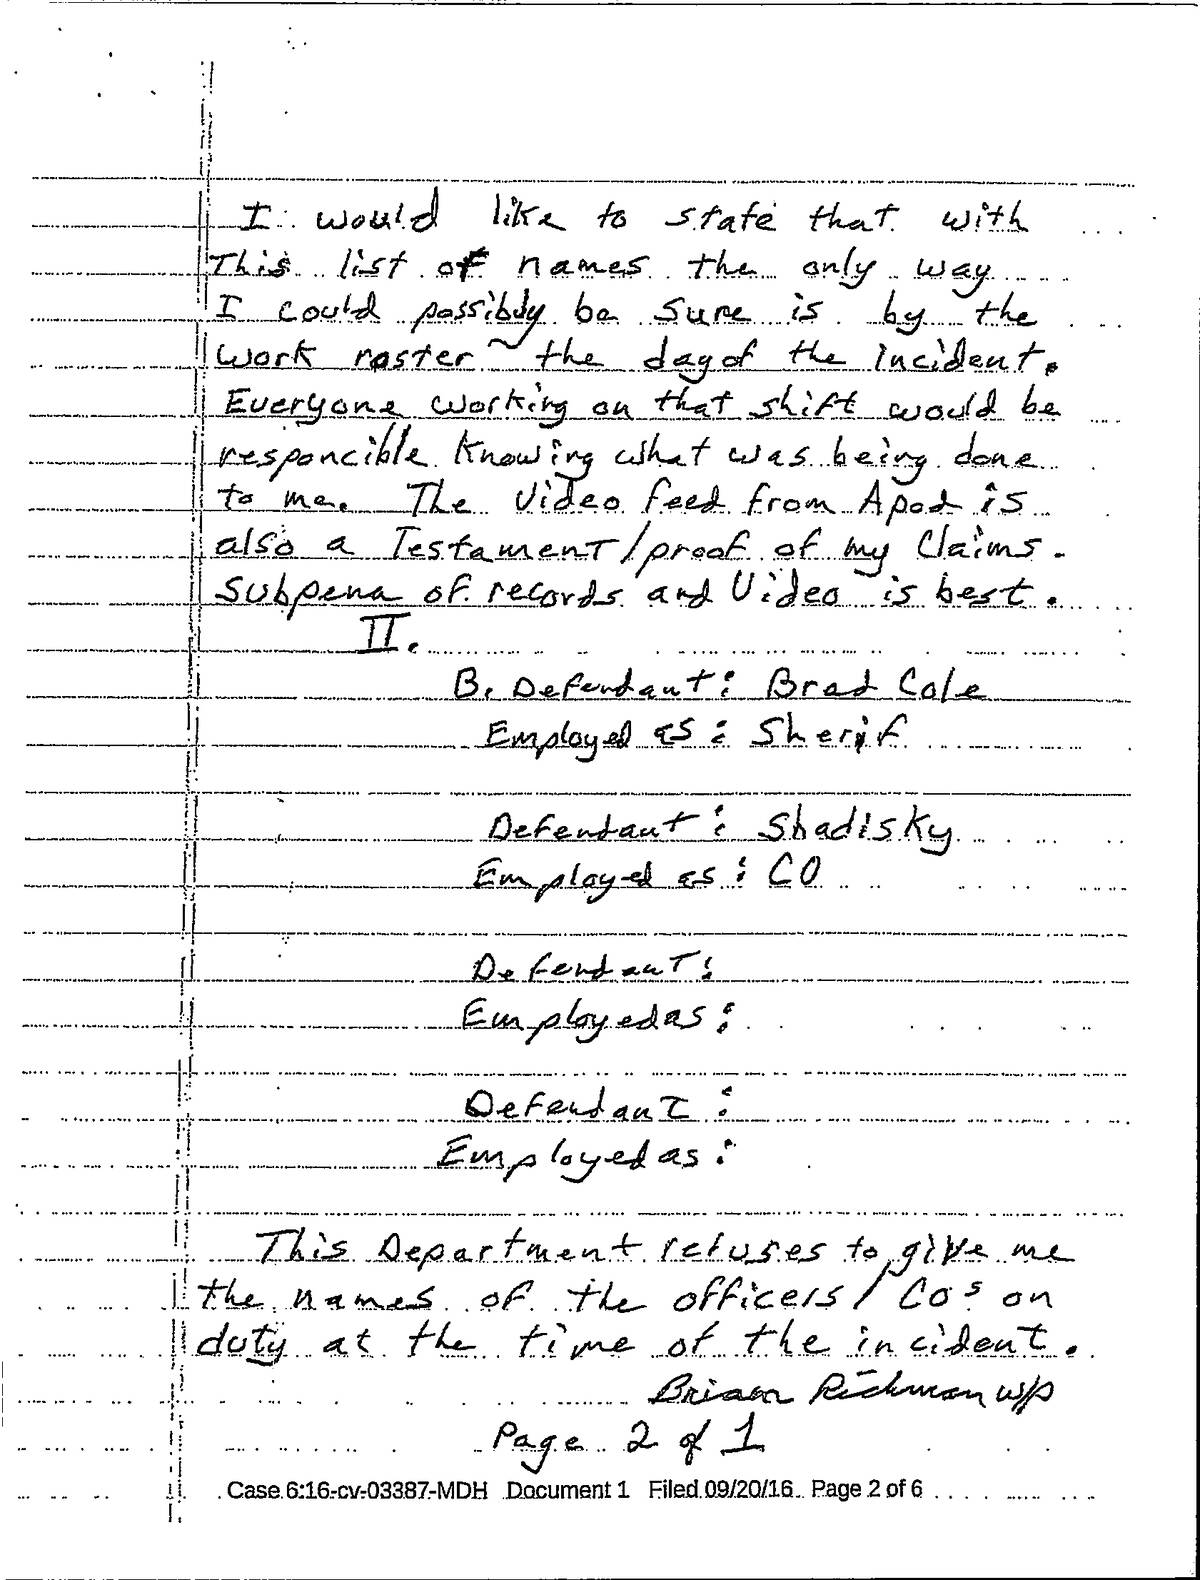 I would like to state that with
This list of names the only way
I could possibly be sure is by the
work roster ~ the day of the incident.
Everyone working on that shift would be
responcible Knowing what was being done
to me. The Video feed from Apod is
also a Testament/proof of my Claims.
Subpena of records and Video is best.
II.
B. Defendant: Brad Cole
Employed as: Sherif
Defendant: Shadisky
Employed as: CO
Defendant:
Employed as:
Defendant:
Employed as:
This Department refuses to give me
the names of the officers/COs on
duty at the time of the incident.
Brian Richman w/p
Page 2 of 1
Case 6:16-cv-03387-MDH Document 1 Filed 09/20/16 Page 2 of 6